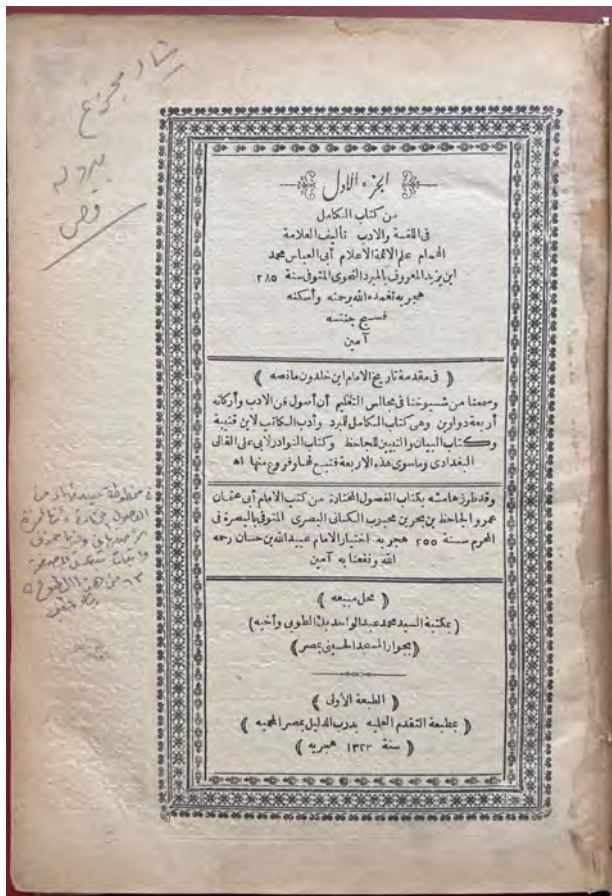 الجزء الاول
من كتاب الكامل
في اللغة والادب تأليف العلامة
الهمام علم الائمة الاعلام أبي العباس محمد
ابن يزيد المعروف بالمبرد النحوى المتوفى سنة ٢٨٥
هجريه تغمده الله برحمته وأسكنه
فسيح جنته
آمين
( فى مقدمة تاريخ الامام ابن خلدون مانصه )
وسمعنا من شيوخنا فى مجالس التعليم أن أصول فن الادب وأركانه
أربعة دواوين وهى كتاب الكامل للمبرد وأدب الكاتب لابن قتيبة
وكتاب البيان والتبيين للجاحظ وكتاب النوادر لابى على القالى
البغدادى وماسوى هذه الاربعة فتبع لها وفروع منها اه
وقد طرز هامشه بكتاب الفصول المختارة من كتب الامام أبى عثمان
عمرو الجاحظ بن بحر بن محبوب الكنانى البصرى المتوفى بالبصرة فى
المحرم سنة ٢٥٥ هجريه اختيار الامام عبيد الله بن حسان رحمه
الله ونفعنا به آمين
( محل مبيعه )
(بمكتبة السيد محمد عبد الواحد بك الطوبى وأخيه)
(بجوار المسجد الحسينى بمصر)
( الطبعة الأولى )
( بمطبعة التقدم العلميه بدرب الدليل بمصر المحميه )
( سنة ١٣٢٣ هجريه )